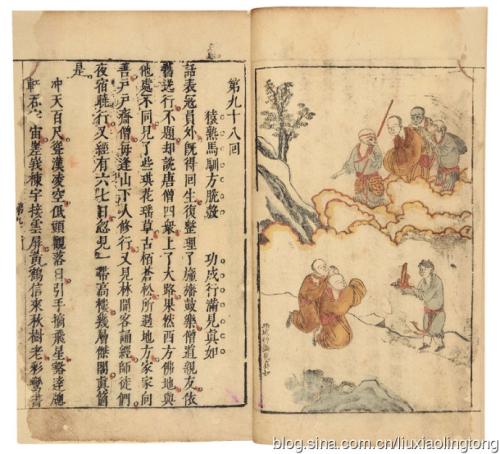 第九十八回
猿熟馬馴方脫殼　功成行滿見真如
話表寇員外既得回生復整理了幢旛鼓樂僧道親友依
舊送行不題却說唐僧四衆上了大路果然西方佛地與
他處不同見了些琪花瑤草古栢蒼松所過地方家家向
善戶戶齋僧每逢山下人修行又見林間客誦經師徒們
夜宿曉行又經有六七日忽見一帶高樓幾層傑閣真箇
是
冲天百尺聳漢凌空低頭觀落日引手摘飛星豁達牎
軒吞宇宙嵳峩棟宇接雲屏黃鶴信來秋樹老彩鸞書
blog.sina.com.cn/liuxiaolingtong